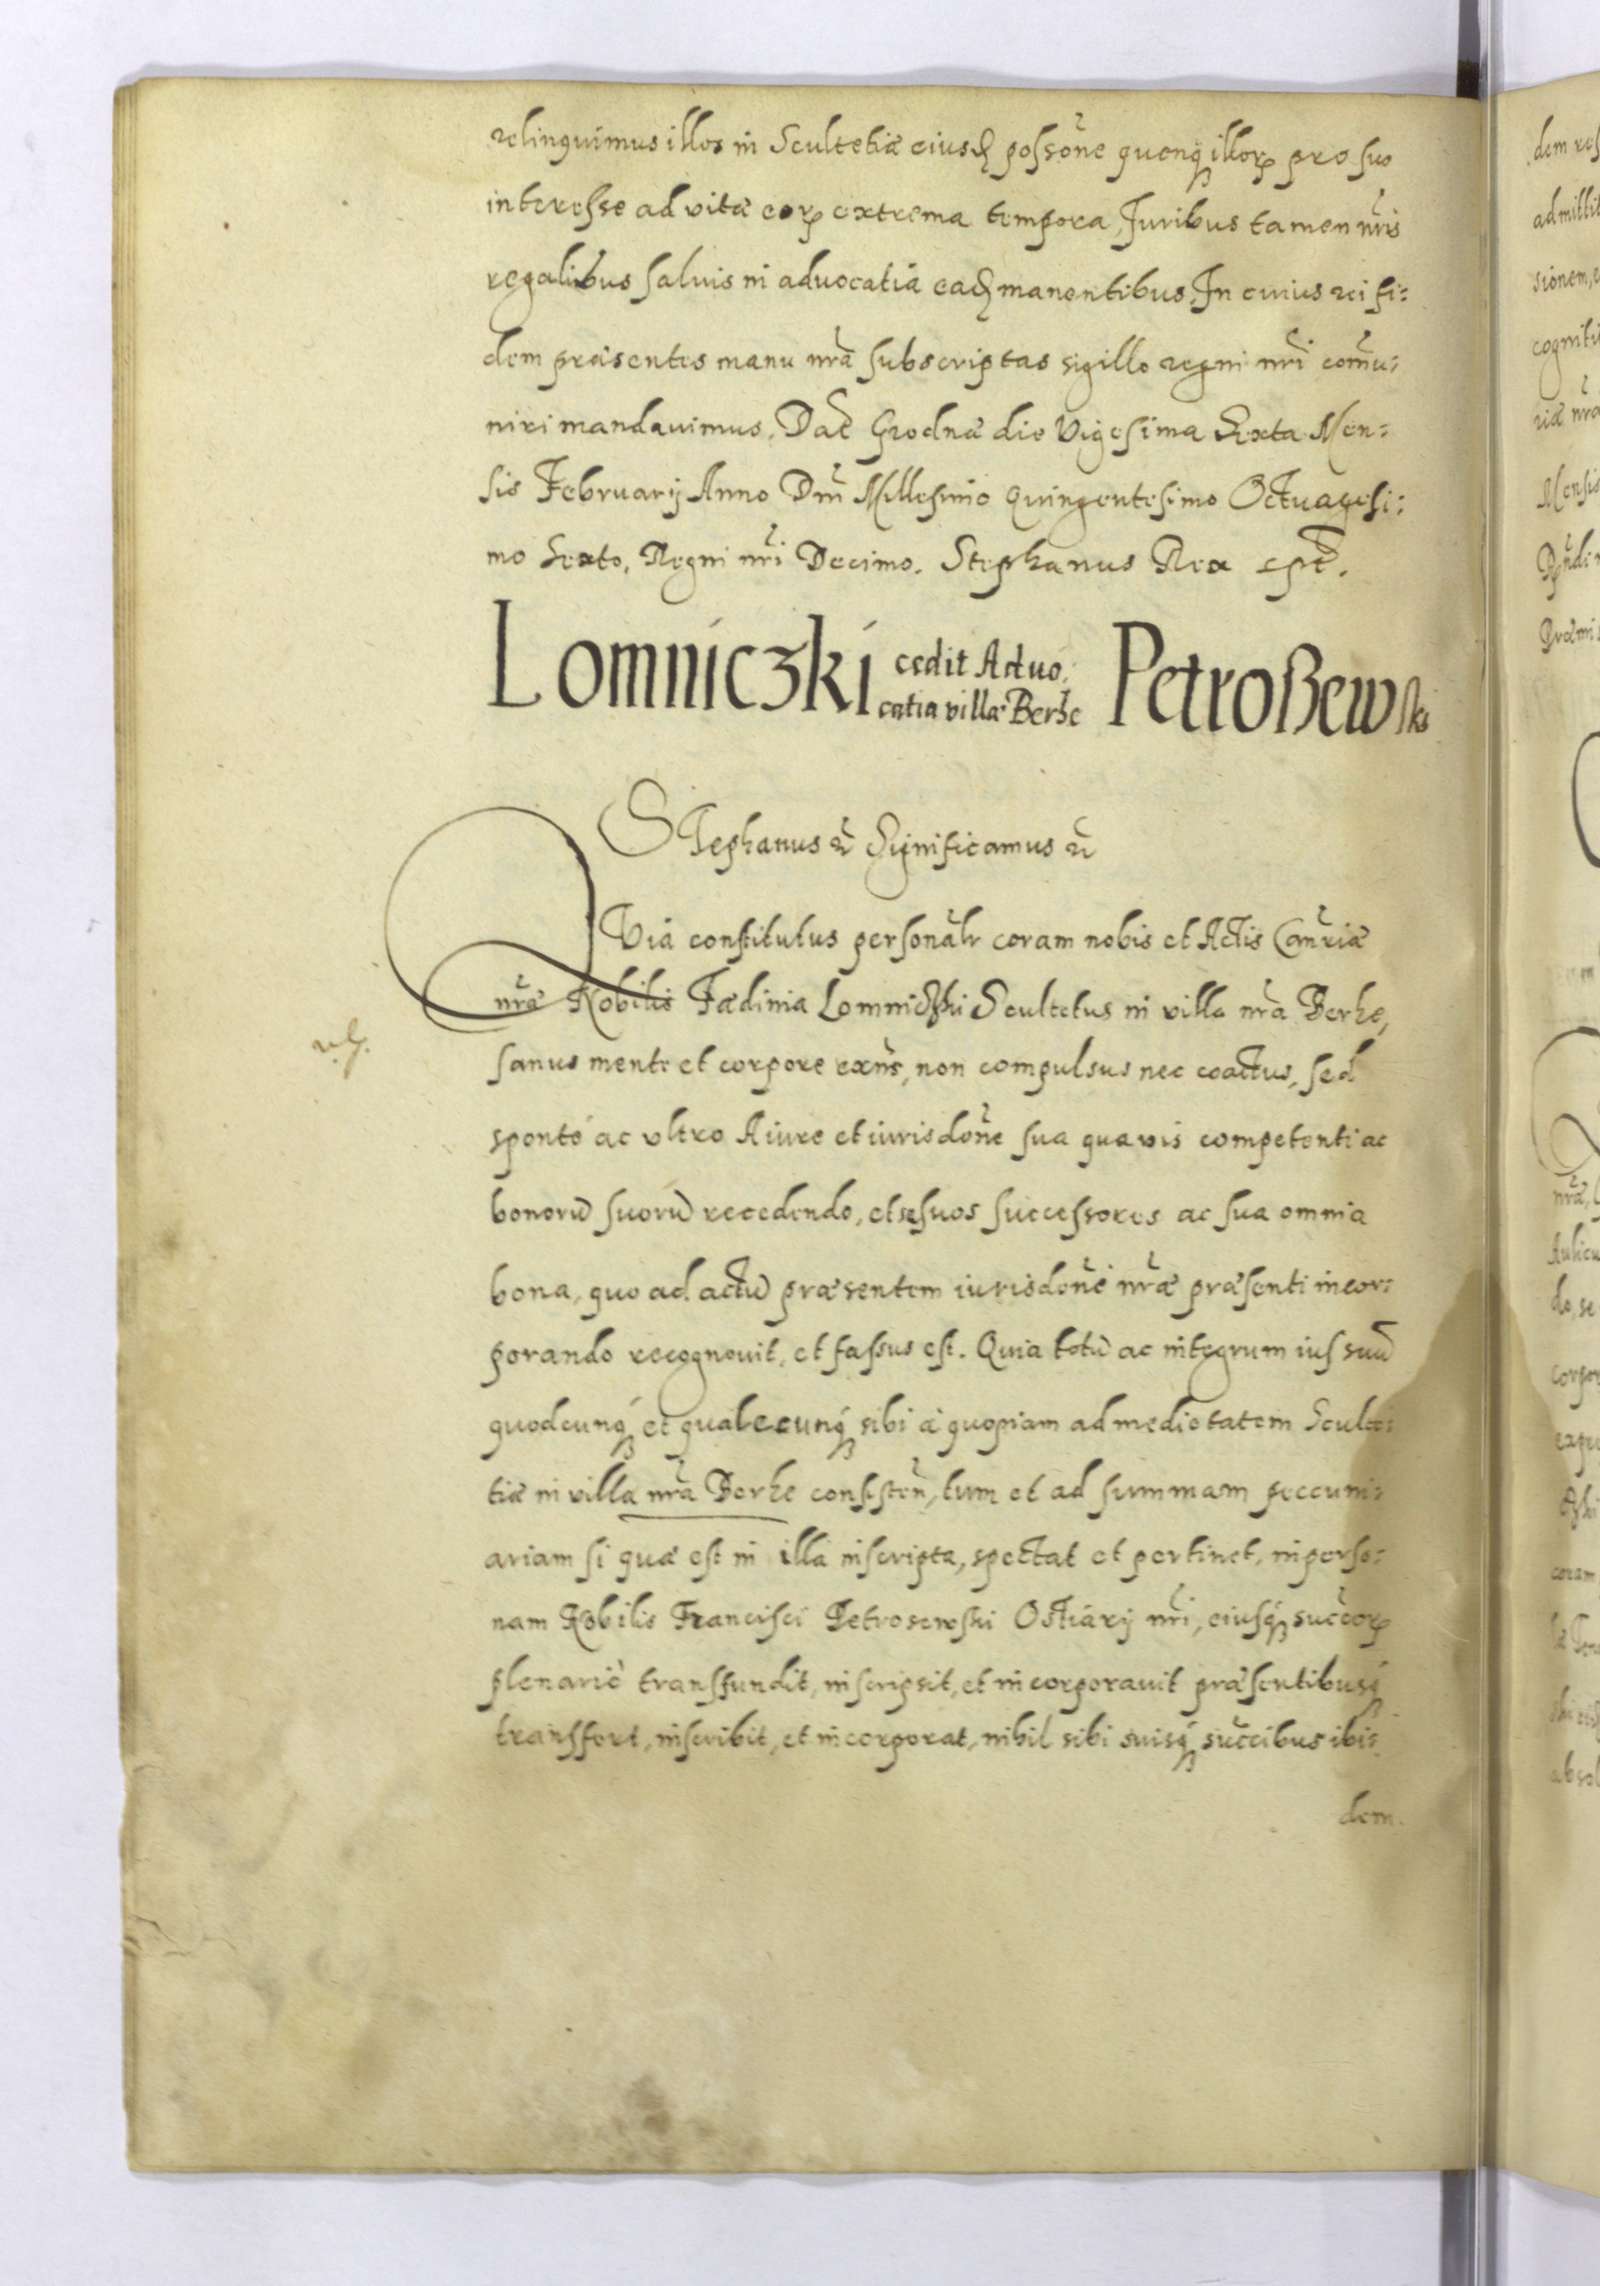 relinquimus illos in Scultetiæ eiusđ possone̅ quenqꝫ illorꝝ pro suo
interesse ad vitæ eorꝝ extrema tempora, Juribus tamen nr̃is
regalibus salvis in advocatia eađ manentibus. In cuius rei fi:
dem præsentes manu nr̃a subscriptas sigillo regni nr̃i com̃u:
niri mandavimus. Dat̃ Grodnæ die Vigesima Sexta Men:
sis Februarij Anno Dnĩ Millesimo Quingentesimo Octuagesi:
mo Sexto, Regni nr̃i Decimo. Stephanus Rex spt̃.
Lomniczki cedit Advo: Petroßewski
catia villæ Berhe
Stephanus ꝛc̃ Significamus ꝛc̃
QVia constitutus personalr̃ coram nobis et Actis Canr̃iæ
nr̃æ Nobilis Fædinia Lomniczki Scultetus in villa nr̃a Berhe,
sanus mente et corpore exn̄s, non compulsus nec coactus, sed
sponte ac vltro A iure et iurisdone̅ sua quavis competenti ac
bonorũ suorũ recedendo, et se suos successores ac sua omnia
bona, quo ad actũ præsentem iurisdoni̅ nr̃æ præsenti incor:
porando recognovit, et fassus est. Quia totũ ac integrum ius suũ
quodcunqꝫ et qualecunqꝫ sibi à quopiam ad medietatem Sculte:
tiæ in villa nr̃a Berhe consisten̄, tum et ad summam peccuni:
ariam si quæ est in illa inscripta, spectat et pertinet, in perso:
nam Nobilis Francisci Petrosewski Ostiarij nr̃i, eiusqꝫ succ̃orꝝ
plenariè transfundit, inscripsit, et incorporavit præsentibusqꝫ
transfert, inscribit, et incorporat, nihil sibi suisqꝫ succ̃ibus ibi:
dem